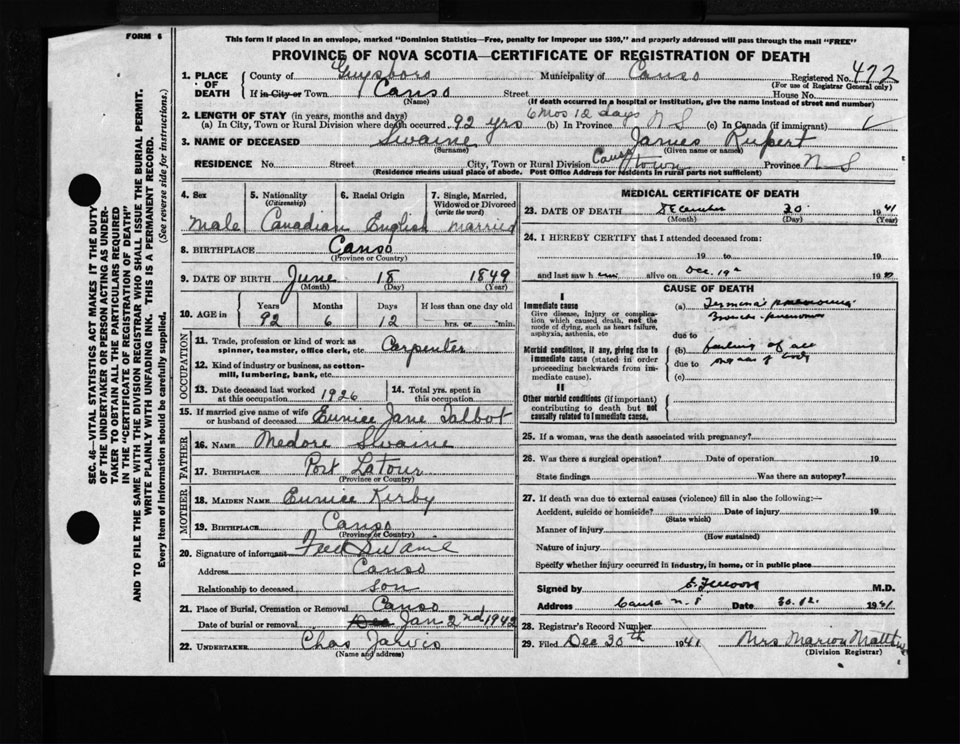 FORM 6
This form if placed in an envelope, marked "Dominion Statistics—Free, penalty for improper use $300," and properly addressed will pass through the mail "FREE"
PROVINCE OF NOVA SCOTIA—CERTIFICATE OF REGISTRATION OF DEATH
SEC. 46—VITAL STATISTICS ACT MAKES IT THE DUTY
OF THE UNDERTAKER OR PERSON ACTING AS UNDER-
TAKER TO OBTAIN ALL THE PARTICULARS REQUIRED
IN THE "CERTIFICATE OF REGISTRATION OF DEATH"
AND TO FILE THE SAME WITH THE DIVISION REGISTRAR WHO SHALL ISSUE THE BURIAL PERMIT.
WRITE PLAINLY WITH UNFADING INK. THIS IS A PERMANENT RECORD.
Every item of information should be carefully supplied. (See reverse side for instructions.)
1. PLACE OF DEATH County of Guysboro Municipality of Canso Registered No. 472
(For use of Registrar General only)
If in City or Town Canso Street House No.
(Name) (If death occurred in a hospital or institution, give the name instead of street and number)
2. LENGTH OF STAY (in years, months and days) 6 mos 12 days
(a) In City, Town or Rural Division where death occurred 92 yrs (b) In Province N S (c) In Canada (if immigrant)
3. NAME OF DECEASED Swaine James Rupert
(Surname) (Given name or names)
RESIDENCE No. Street City, Town or Rural Division Canso town Province N S
(Residence means usual place of abode. Post Office Address for residents in rural parts not sufficient)
4. Sex 5. Nationality (Citizenship) 6. Racial Origin 7. Single, Married, Widowed or Divorced (write the word)
Male Canadian English Married
8. BIRTHPLACE Canso
(Province or Country)
9. DATE OF BIRTH June 18 1849
(Month) (Day) (Year)
10. AGE in Years Months Days If less than one day old
92 6 12 hrs. or min.
OCCUPATION
11. Trade, profession or kind of work as spinner, teamster, office clerk, etc. Carpenter
12. Kind of industry or business, as cotton-mill, lumbering, bank, etc.
13. Date deceased last worked at this occupation 1926 14. Total yrs. spent in this occupation
15. If married give name of wife or husband of deceased Eunice Jane Talbot
FATHER
16. NAME Medore Swaine
17. BIRTHPLACE Port LaTour
(Province or Country)
MOTHER
18. MAIDEN NAME Eunice Kerby
19. BIRTHPLACE Canso
(Province or Country)
20. Signature of informant Fred Swaine
Address Canso
Relationship to deceased son
21. Place of Burial, Cremation or Removal Canso
Date of burial or removal Dec Jan 2nd 1942
22. UNDERTAKER Chas Jarvis
(Name and address)
MEDICAL CERTIFICATE OF DEATH
23. DATE OF DEATH December 30 1941
(Month) (Day) (Year)
24. I HEREBY CERTIFY that I attended deceased from:
19 to 19
and last saw h alive on Dec. 19
CAUSE OF DEATH
I
Immediate cause
Give disease, injury or complication which caused death, not the mode of dying, such as heart failure, asphyxia, asthenia, etc
(a) Terminal pneumonia
due to
Morbid conditions, if any, giving rise to immediate cause (stated in order proceeding backwards from immediate cause).
(b) failing of all
due to organs of body
(c)
II
Other morbid conditions (if important) contributing to death but not causally related to immediate cause.
25. If a woman, was the death associated with pregnancy?
26. Was there a surgical operation? Date of operation 19
State findings Was there an autopsy?
27. If death was due to external causes (violence) fill in also the following:—
Accident, suicide or homicide? Date of injury 19
(State which)
Manner of injury
(How sustained)
Nature of injury
Specify whether injury occurred in industry, in home, or in public place
Signed by M.D.
Address Canso N. S Date 30.12. 1941
28. Registrar's Record Number
29. Filed Dec 30th 1941 Mrs Marion
(Division Registrar)